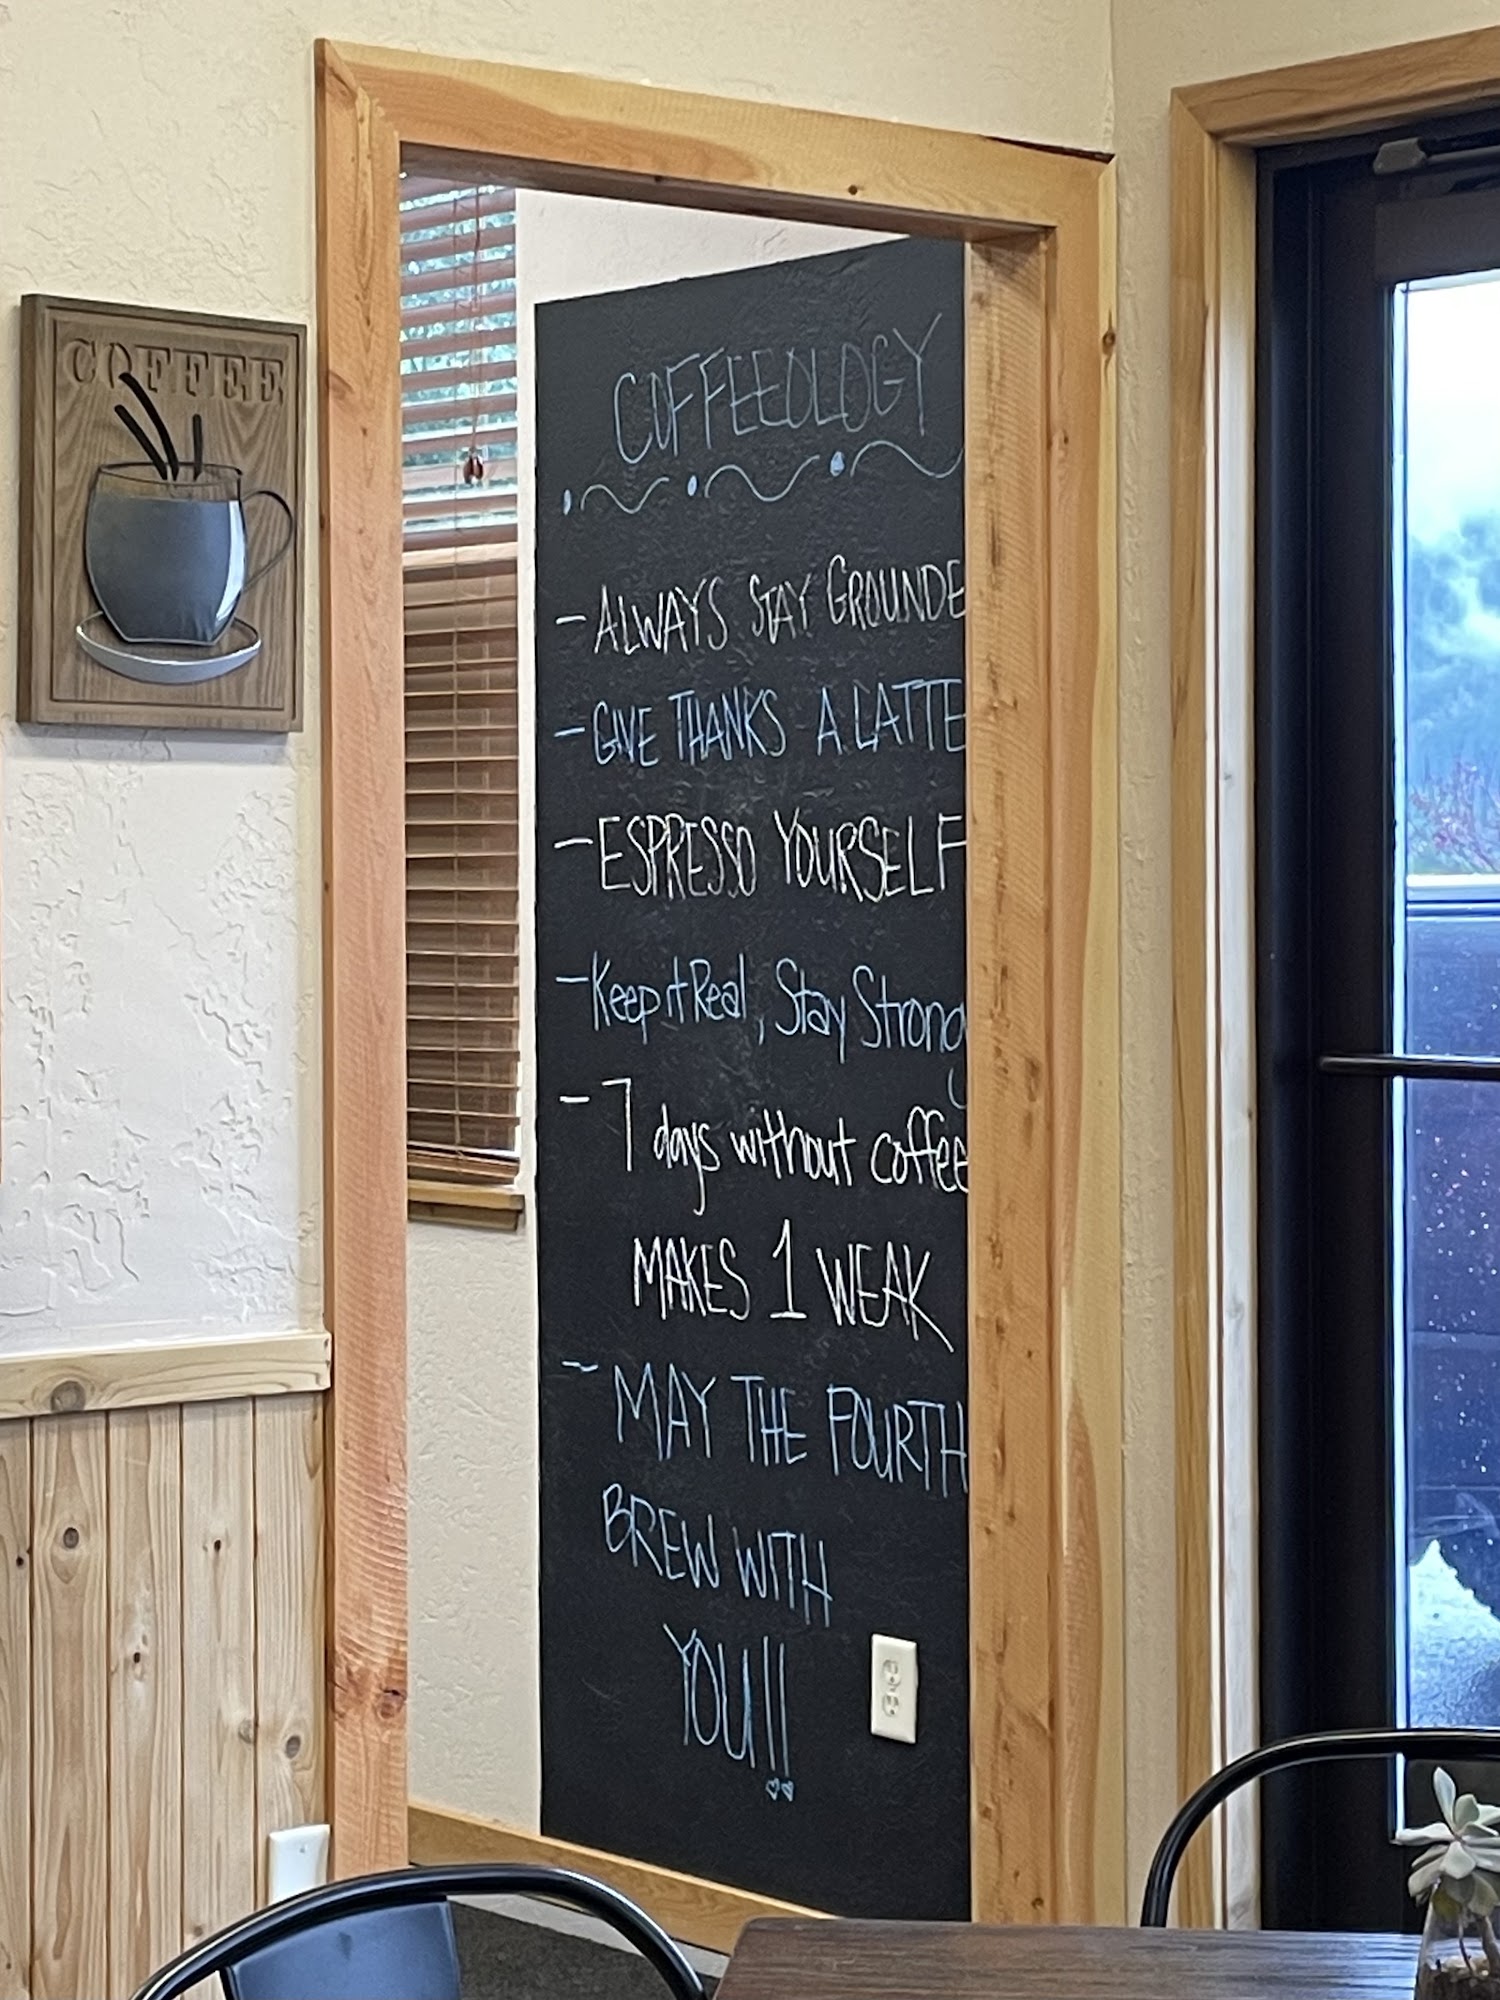 COFFEE
COFFEEOLOGY
- ALWAYS STAY GROUNDE
- GIVE THANKS A LATTE
- ESPRESSO YOURSELF
- Keep it Real, Stay Strong
- 7 days without coffee
MAKES 1 WEAK
- MAY THE FOURTH
BREW WITH
YOU!!